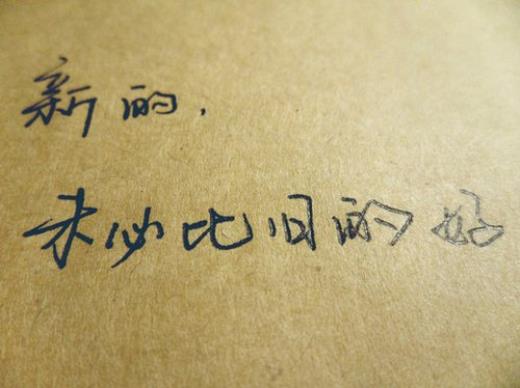 新的，
未必比旧的好